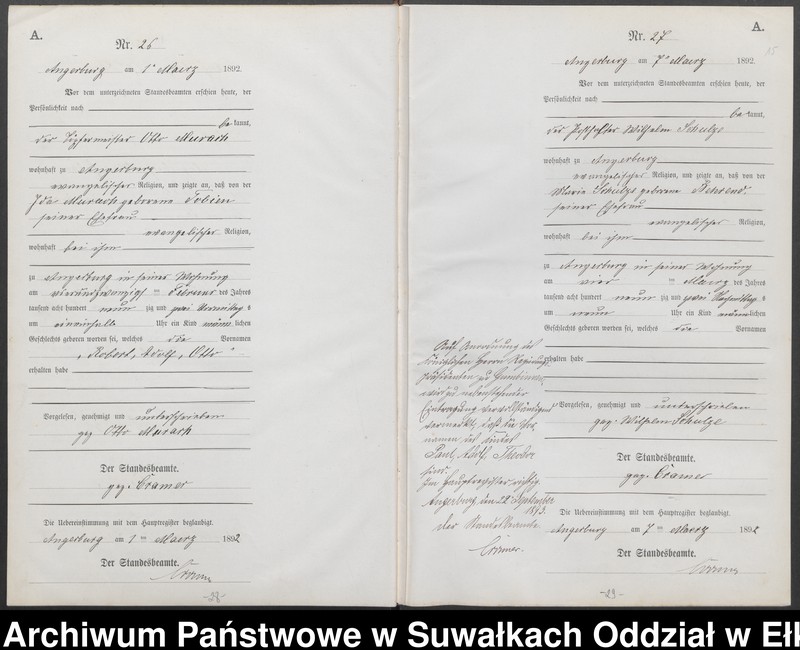 A.
Nr. 26
Angerburg am 1ten Maerz 1892.
Vor dem unterzeichneten Standesbeamten erschien heute, der
Persönlichkeit nach
bekannt,
der Töpfermeister Otto Murach
wohnhaft zu Angerburg
evangelischer Religion, und zeigte an, daß von der
Ida Murach geborene Tobien
seiner Ehefrau
evangelischer Religion,
wohnhaft bei ihm
zu Angerburg in seiner Wohnung
am vierundzwanzigsten Februar des Jahres
tausend acht hundert neunzig und zwei Vormittags
um eineinhalb Uhr ein Kind männlichen
Geschlechts geboren worden sei, welches die Vornamen
„Robert, Adolf, Otto“
erhalten habe
Vorgelesen, genehmigt und unterschrieben
gez Otto Murach
Der Standesbeamte.
gez. Cramer
Die Uebereinstimmung mit dem Hauptregister beglaubigt.
Angerburg am 1ten Maerz 1892
Der Standesbeamte.
Cramer
-28-
A.
15
Nr. 27
Angerburg am 7ten Maerz 1892.
Vor dem unterzeichneten Standesbeamten erschien heute, der
Persönlichkeit nach
bekannt,
der Wilhelm Schulze
wohnhaft zu Angerburg
evangelischer Religion, und zeigte an, daß von der
Maria Schulze geborene Behrend
seiner Ehefrau
evangelischer Religion,
wohnhaft bei ihm
zu Angerburg in seiner Wohnung
am vierten Maerz des Jahres
tausend acht hundert neunzig und zwei Nachmittags
um neun Uhr ein Kind männlichen
Geschlechts geboren worden sei, welches die Vornamen
erhalten habe
Vorgelesen, genehmigt und unterschrieben
gez. Wilhelm Schulze
Der Standesbeamte.
gez. Cramer
Die Uebereinstimmung mit dem Hauptregister beglaubigt.
Angerburg am 7ten Maerz 1892
Der Standesbeamte.
Cramer
-29-
Auf Anordnung des
Königlichen Herrn Regierungs
Präsidenten zu Gumbinnen
wird nebenstehender
Eintragung vervollständigend
vermerkt, daß die Vor
namen des Kindes
Paul, Adolf, Theodor
sind.
Im Hauptregister richtig.
Angerburg, den 22 September
1893.
Der Standesbeamte
Cramer.
Archiwum Państwowe w Suwałkach Oddział w Ełk